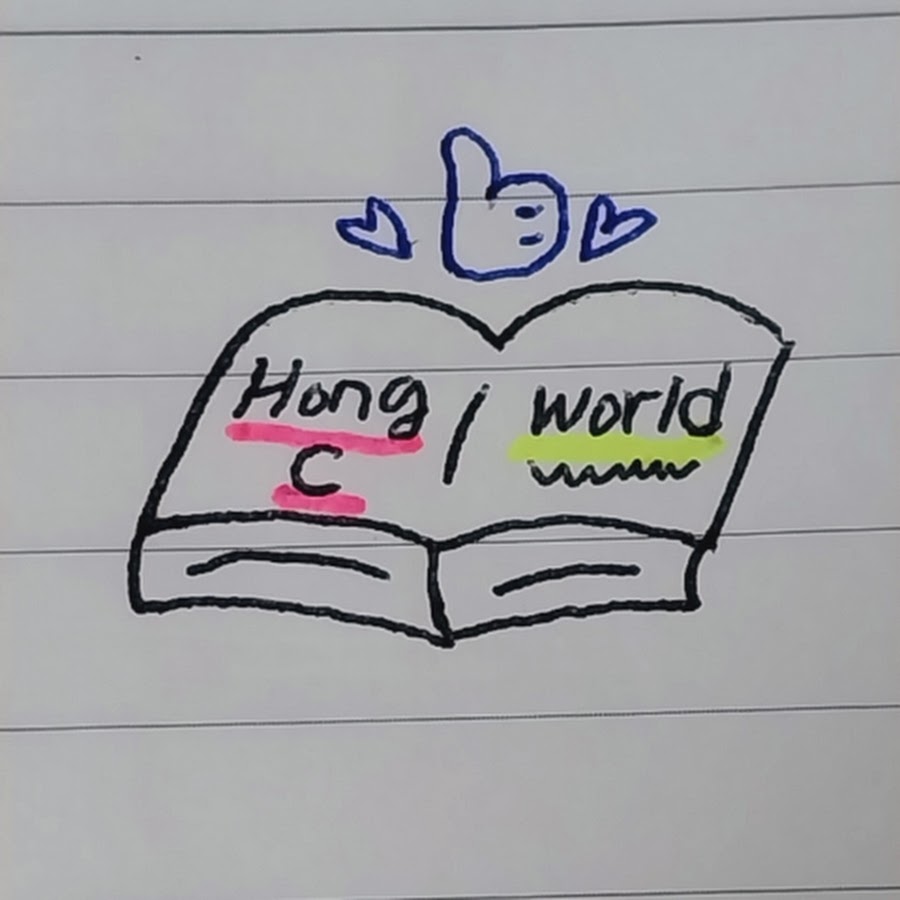 Hong
C
World